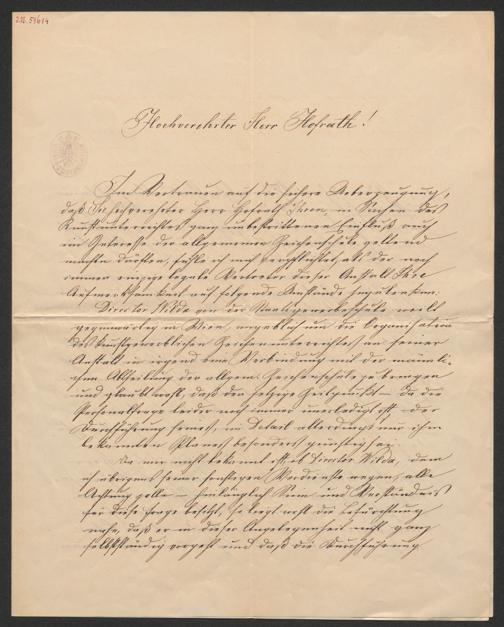 216.516/4
Hochverehrter Herr Hofrath!
Im Vertrauen auf die sichere Ueberzeugung,
daß Sie hochverehrter Herr Hofrath Ihren, in Sachen des
Kunstunterrichtes ganz unbestrittenen Einfluß auch
im Interesse der allgemeinen Zeichenschule geltend
machen dürften, fühle ich mich verpflichtet, als der noch
immer einzige legale Vertreter dieser Anstalt Ihre
Aufmerksamkeit auf folgende Umstände hinzulenken.
Director Wilda von der Staatsgewerbeschule weilt
gegenwärtig in Wien, angeblich um die Organisation
des kunstgewerblichen Zeichenunterrichtes an seiner
Anstalt in irgend eine Verbindung mit der männli-
chen Abtheilung der allgem. Zeichenschule zu bringen
und glaubt wohl, daß der jetzige Zeitpunkt – da die
Personalfrage leider noch immer unerledigt ist – der
Durchführung seines, im Detail allerdings nur ihm
bekannten Planes besonders günstig sei.
Da mir nicht bekannt ist, ob Director Wilda, dem
ich übrigens seiner sonstigen Verdienste wegen, alle
Achtung zolle – hinlänglich Sinn und Verständnis
für diese Frage besitzt, so liegt wohl die Befürchtung
nahe, daß er in dieser Angelegenheit nicht ganz
selbstständig vorgeht und daß die Durchführung